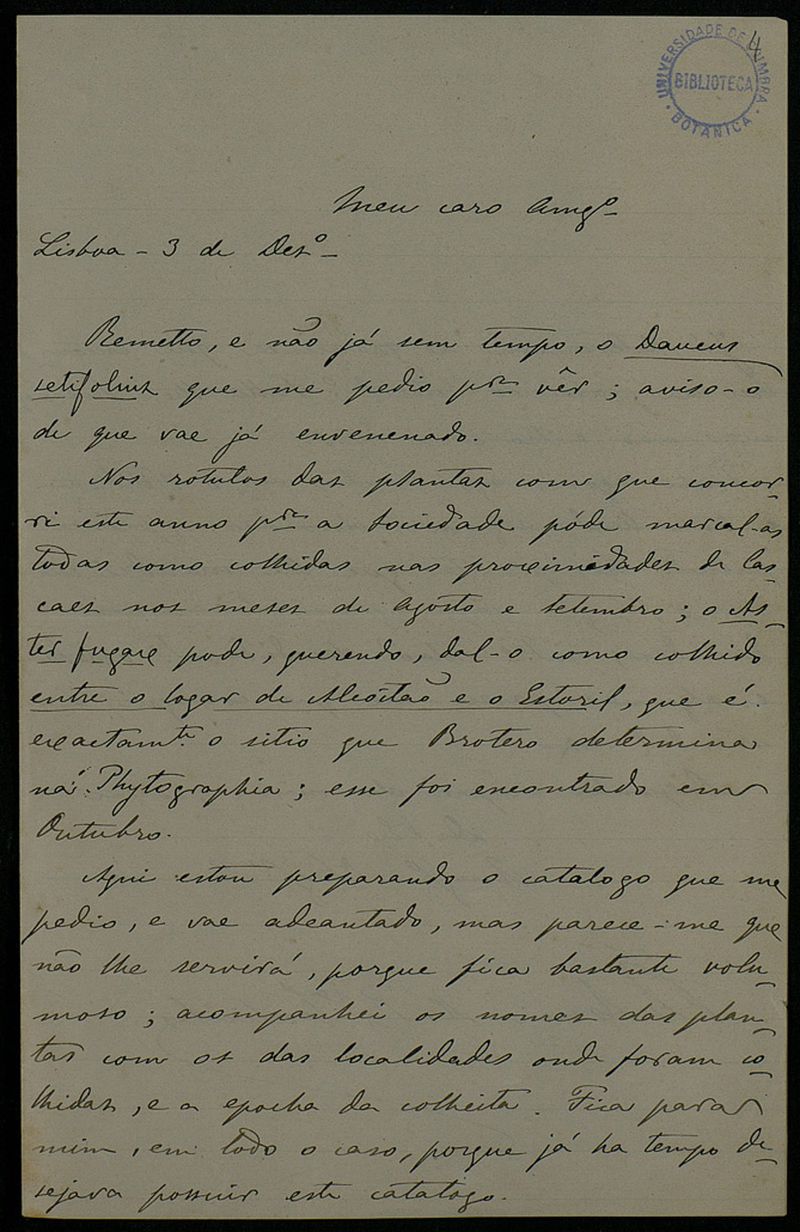 4
UNIVERSIDADE DE COIMBRA
BIBLIOTECA
BOTANICA
Meu caro Amgº
Lisboa - 3 de Dezº -
Remetto, e não já sem tempo, o Daucus
setifolius que me pedio prª vêr ; aviso-o
de que vae já envenenado.
Nos rotulos das plantas com que concor-
ri este anno prª a Sociedade póde marcal-as
todas como colhidas nas proximidades de Cas-
caes nos meses de Agosto e Setembro ; o As-
ter fugax pode, querendo, dal-o como colhido
entre o logar de Alcoitão e o Estoril, que é
exactamte o sitio que Brotero determina
na Phytographia ; esse foi encontrado em
Outubro.
Aqui estou preparando o catalogo que me
pedio, e vae adeantado, mas parece-me que
não lhe servirá, porque fica bastante volu-
moso ; acompanhei os nomes das plan-
tas com os das localidades onde foram co-
lhidas, e a epocha da colheita. Fica para
mim, em todo o caso, porque já ha tempo de-
sejava possuir este catalogo.